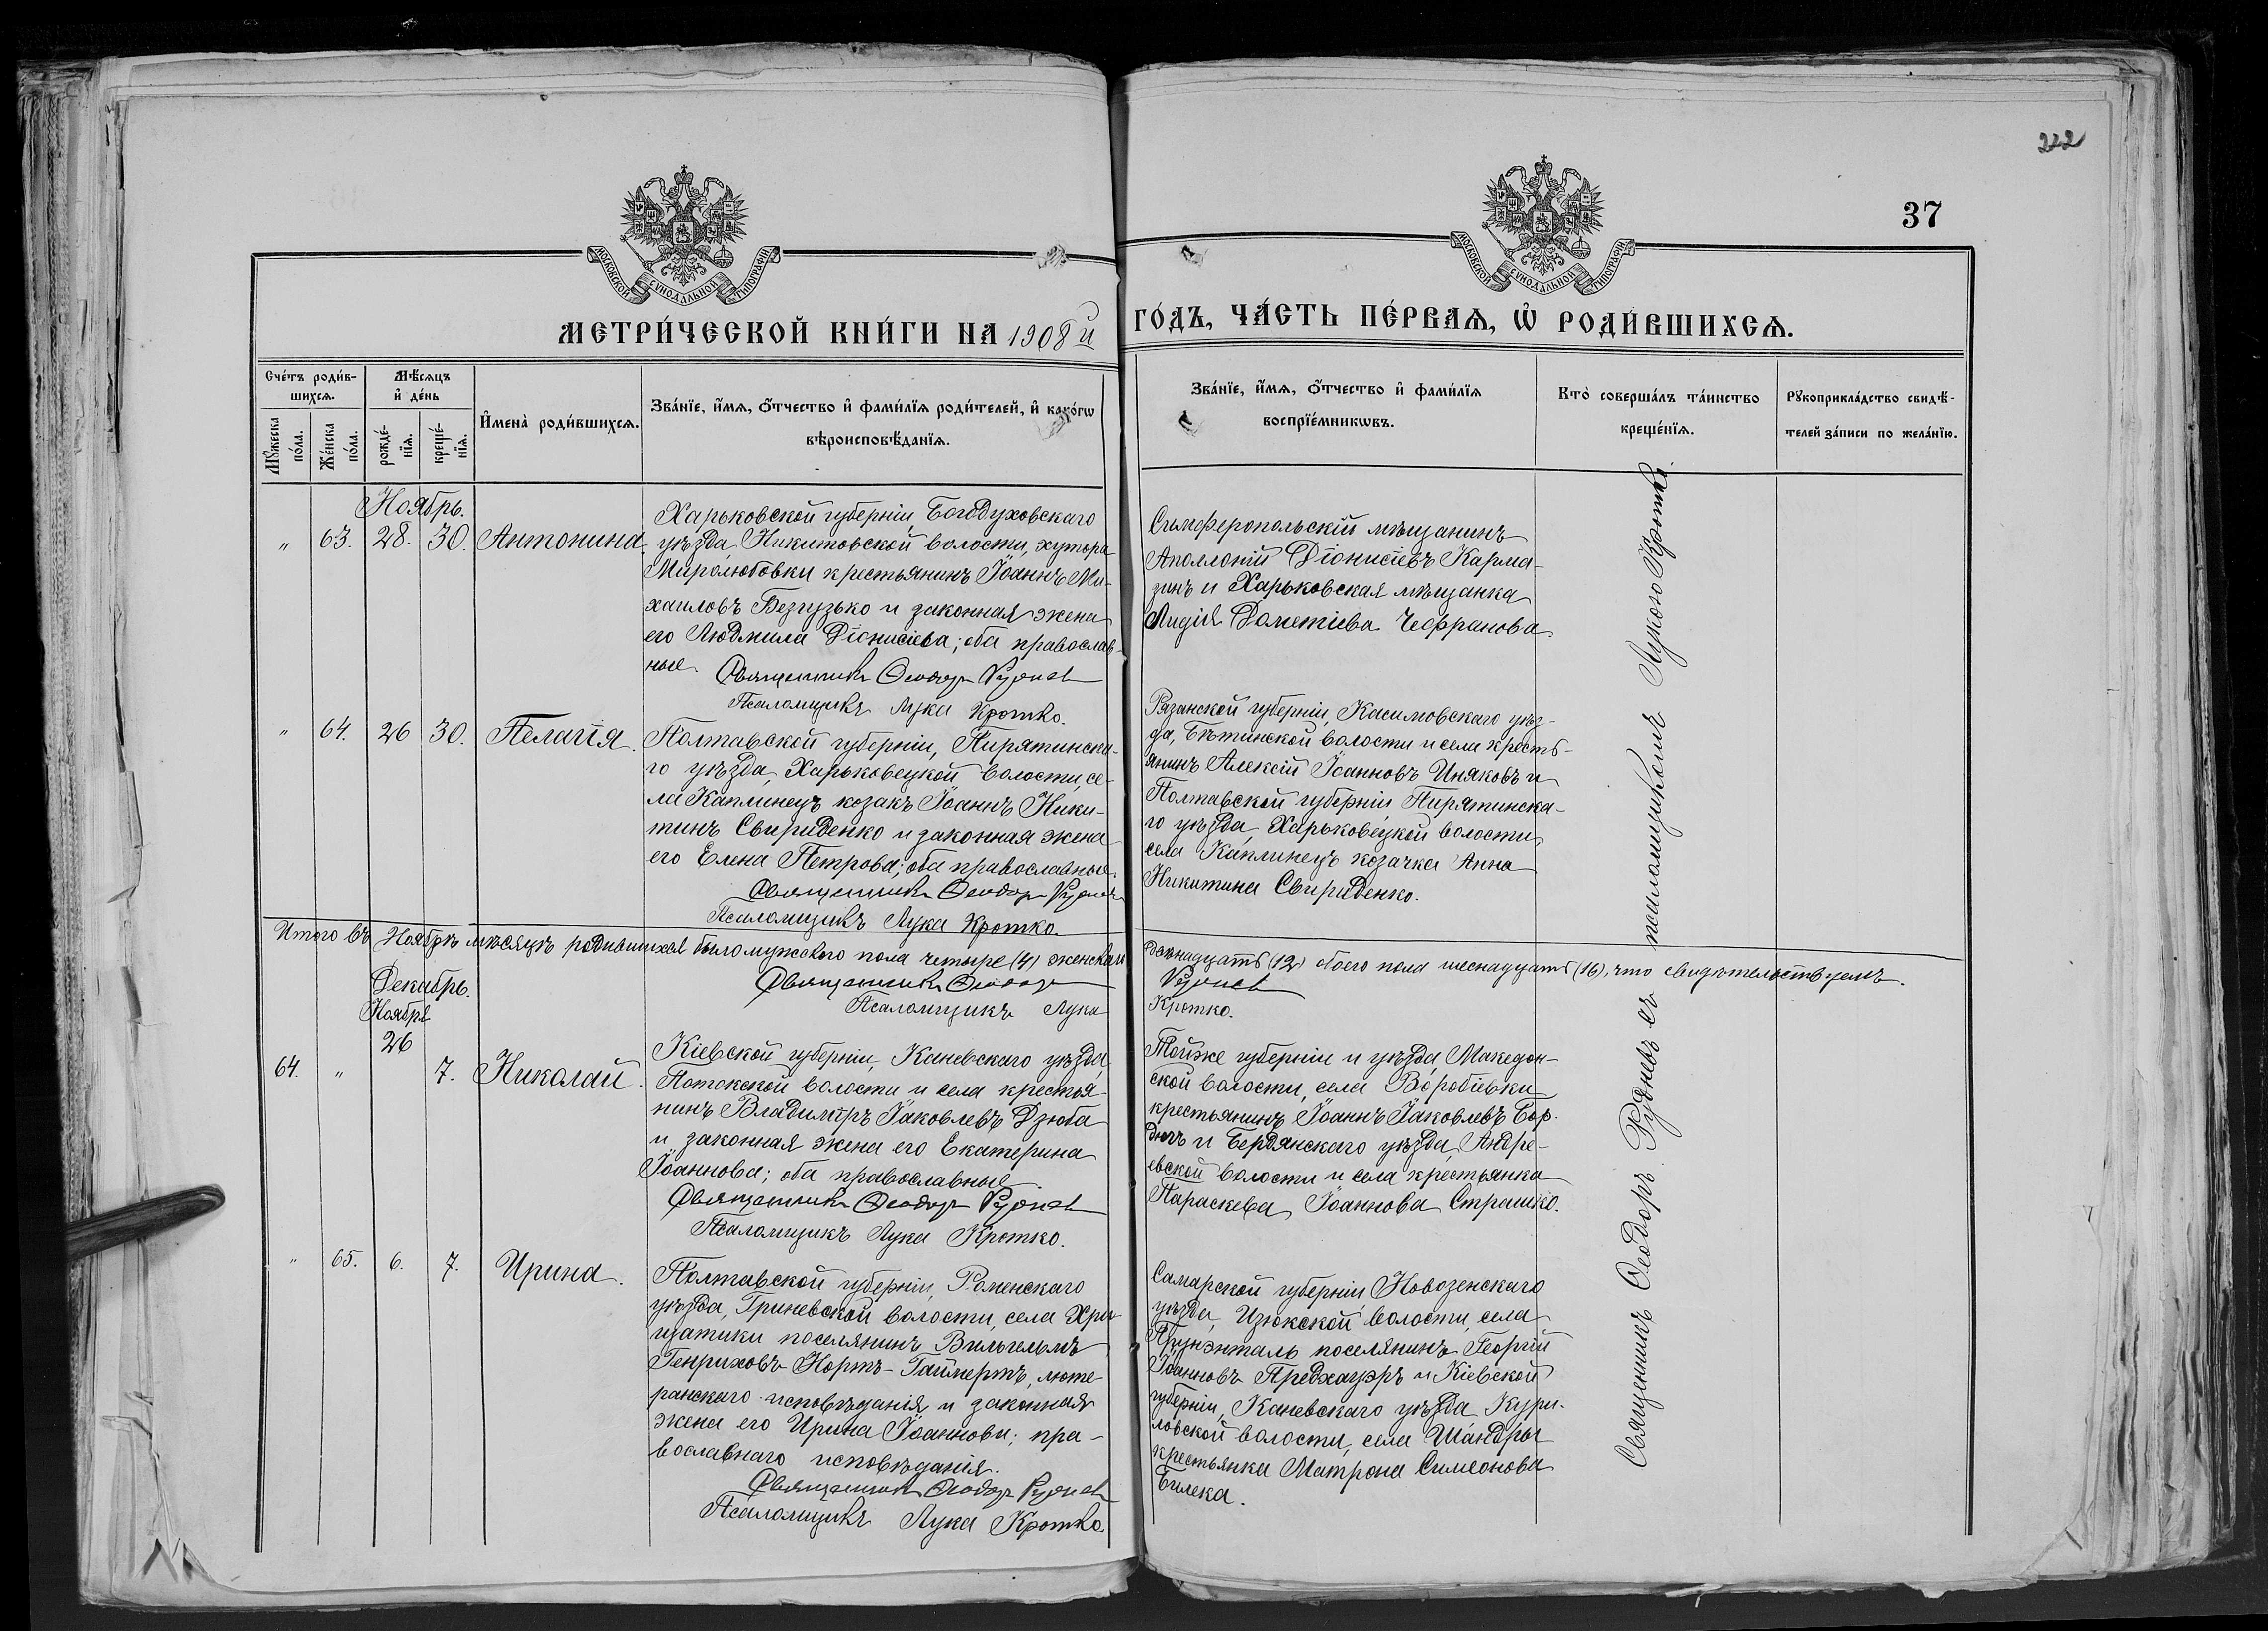 222
37
МОСКОВСКОЙ СѴНОДАЛЬНОЙ ТИПОГРАФІИ
МОСКОВСКОЙ СѴНОДАЛЬНОЙ ТИПОГРАФІИ
МЕТРИ́ЧЕСКОЙ КНИ́ГИ НА 1908й ГО́ДЪ, ЧА́СТЬ ПЕ́РВАѦ, Ѽ РОДИ́ВШИХСѦ.
Сче́тъ роди́в-
шихсѧ.
Мꙋ́жеска по́ла.
Же́нска по́ла.
Мѣ́сѧцъ
и҆ де́нь
рожде́-
нїѧ.
креще́-
нїѧ.
И҆мена̀ роди́вшихсѧ.
Зва́нїе, и҆́мѧ, ѻ҆́тчество и҆ фами́лїѧ роди́телей, и҆ како́гѡ
вѣроисповѣ́данїѧ.
Зва́нїе, и҆́мѧ, ѻ҆́тчество и҆ фами́лїѧ
воспрїе́мникѡвъ.
Кто̀ соверша́лъ та́инство
креще́нїѧ.
Рꙋкоприкла́дство свидѣ́-
телей за́писи по жела́нїю.
Ноябрь.
" 63. 28. 30. Антонина.
Харьковской губерніи, Богодуховскаго
уѣзда, Никитовской волости, хутора
Миролюбовки крестьянинъ Іоаннъ Ми-
хаиловъ Безгузько и законная жена
его Людмила Діонисіева; оба православ-
ные. Священникъ Ѳеодоръ Рудневъ
Псаломщикъ Лука Кротко.
Симферопольскій мѣщанинъ
Аполлоній Діонисіевъ Карма-
зинъ и Харьковская мѣщанка
Лидія Дометіева Чефранова.
" 64. 26 30. Пелагія.
Полтавской губерніи, Пирятинска-
го уѣзда, Харьковецкой волости, се-
ла Каплинецъ козакъ Іоаннъ Ники-
тинъ Свириденко и законная жена
его Елена Петрова; оба православные.
Священникъ Ѳеодоръ Рудневъ
Псаломщикъ Лука Кротко.
Рязанской губерніи, Касимовскаго уѣз-
да, Бѣтинской волости и села кресть-
янинъ Алексій Іоанновъ Иняковъ и
Полтавской губерніи Пирятинска-
го уѣзда, Харьковецкой волости,
села Каплинецъ козачка Анна
Никитина Свириденко.
Итого въ Ноябрѣ мѣсяцѣ родившихся было мужского пола четыре (4) женскаго двѣнадцать (12) обоего пола шеснадцать (16), что свидѣтельствуемъ.
Священникъ Ѳеодоръ Рудневъ
Псаломщикъ Лука Кротко.
Декабрь.
Ноября
26
64. " 7. Николай.
Кіевской губерніи, Каневскаго уѣзда,
Потокской волости и села крестья-
нинъ Владиміръ Іаковлевъ Дзюба
и законная жена его Екатерина
Іоаннова; оба православные.
Священникъ Ѳеодоръ Рудневъ
Псаломщикъ Лука Кротко.
Тойже губерніи и уѣзда, Македон-
ской волости, села Воробіевки
крестьянинъ Іоаннъ Іаковлевъ Бор-
дюгъ и Бердянскаго уѣзда, Андре-
евской волости и села крестьянка
Параскева Іоаннова Страшко.
" 65. 6. 7. Ирина.
Полтавской губерніи, Роменскаго
уѣзда, Гриневской волости, села Хри-
щатики поселянинъ Вильгельмъ
Генриховъ Нортъ-Гаймертъ, люте-
ранскаго исповѣданія и законная
жена его Ирина Іоаннова; пра-
вославнаго исповѣданія.
Священникъ Ѳеодоръ Рудневъ
Псаломщикъ Лука Кротко.
Самарской губерніи Новозенскаго
уѣзда, Изюкской волости, села
поселянинъ Георгій
Іоанновъ Предхауэръ и Кіевской
губерніи, Каневскаго уѣзда, Кури-
ловской волости, села Шандры
крестьянка Матрона Симеонова
Билека.
Священникъ Ѳеодоръ Рудневъ съ псаломщикомъ Лукою Кротко.